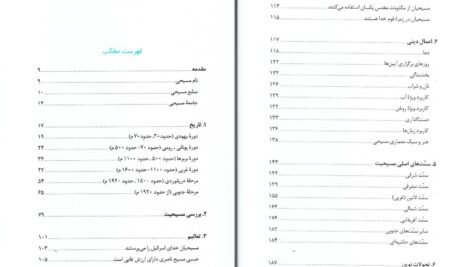 فهرست مطالب
مقدمه ۹
نام مسیحی ۹
منابع مسیحی ۱۰
جامعهٔ مسیحی ۱۴
۱. تاریخ ۱۷
دورهٔ یهودی (حدود ۳۰ ـ حدود ۷۰ م) ۱۹
دورهٔ یونانی ـ رومی (حدود ۷۰ ـ حدود ۵۰۰ م) ۲۴
دورهٔ بربرها (حدود ۵۰۰ ـ حدود ۱۱۰۰ م) ۳۴
دورهٔ غربی (حدود ۱۱۰۰ ـ حدود ۱۶۰۰ م)
مرحلهٔ دریانوردی (حدود ۱۵۰۰ ـ حدود ۱۹۲۰ م) ۵۴
مرحلهٔ جنوبی (از حدود ۱۹۲۰ م) ۶۵
۲. بررسی مسیحیت ۷۹
۳. تعالیم ۱۰۱
مسیحیان خدای اسرائیل را می‌پرستند ۱۰۳
عیسی مسیح ناصری دارای ارزش غایی است ۱۰۵
مسیحیان از مکتوبات مقدس یکسان استفاده می‌کنند ۱۱۳
مسیحیان در زمرهٔ قوم خدا هستند ۱۱۵
۴. اعمال دینی ۱۱۷
دعا ۱۱۸
روزهای برگزاری آیین‌ها ۱۲۲
بخشندگی
نان و شراب
کاربرد ویژهٔ آب
کاربرد ویژهٔ روغن
دستگذاری
کاربرد زبان‌ها
هنر و سبک معماری مسیحی
۵. سنّت‌های اصلی مسیحیت ۱۴۳
سنّت شرقی
سنّت مشرقی
سنّت لاتین (غربی)
سنّت شمالی
سنّت آفریقایی
سایر سنّت‌های جنوبی
سنّت‌های حاشیه‌ای
۶. تحولات نوین ۱۸۷